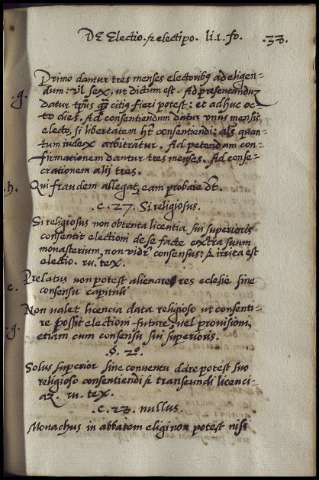 DE Electio. & electi po. li. 1. fo. .33.
Primo dantur tres menses electoribus ad eligen-
dum: vel sex, ut dictum est. Ad presentandum
.g. datur tps̄ q̄ citi9 fieri potest: et adhuc oc
to dies. Ad consentiendum datur vnus mensis
electo, si libertatem ht̄ consentiendi: als quan-
tum iudex arbitratur. Ad petendam con-
firmationem dantur tres menses. Ad conse-
crationem alij tres.
.h. Qui fraudem allegat, eam probare dt̄.
.c. 27. Si religiosus.
Si religiosus non obtenta licentia sui superioris
consentit electioni de se facte extra suum
monasterium, non videt consensus: & irrita est
electio. ru. tex.
c. Prelatus non potest alienare res eclesie sine
consensu capituli
Non ualet licencia data religioso ut consenti-
re possit electioni future, uel prouisioni,
g. etiam cum consensu sui superioris.
§. 2o.
Solus superior sine conuentu dare potest suo
religioso consentiendi & transeundi licenci-
a. ru. tex.
.c. 28. nullus
Monachus in abbatem eligi non potest nisi